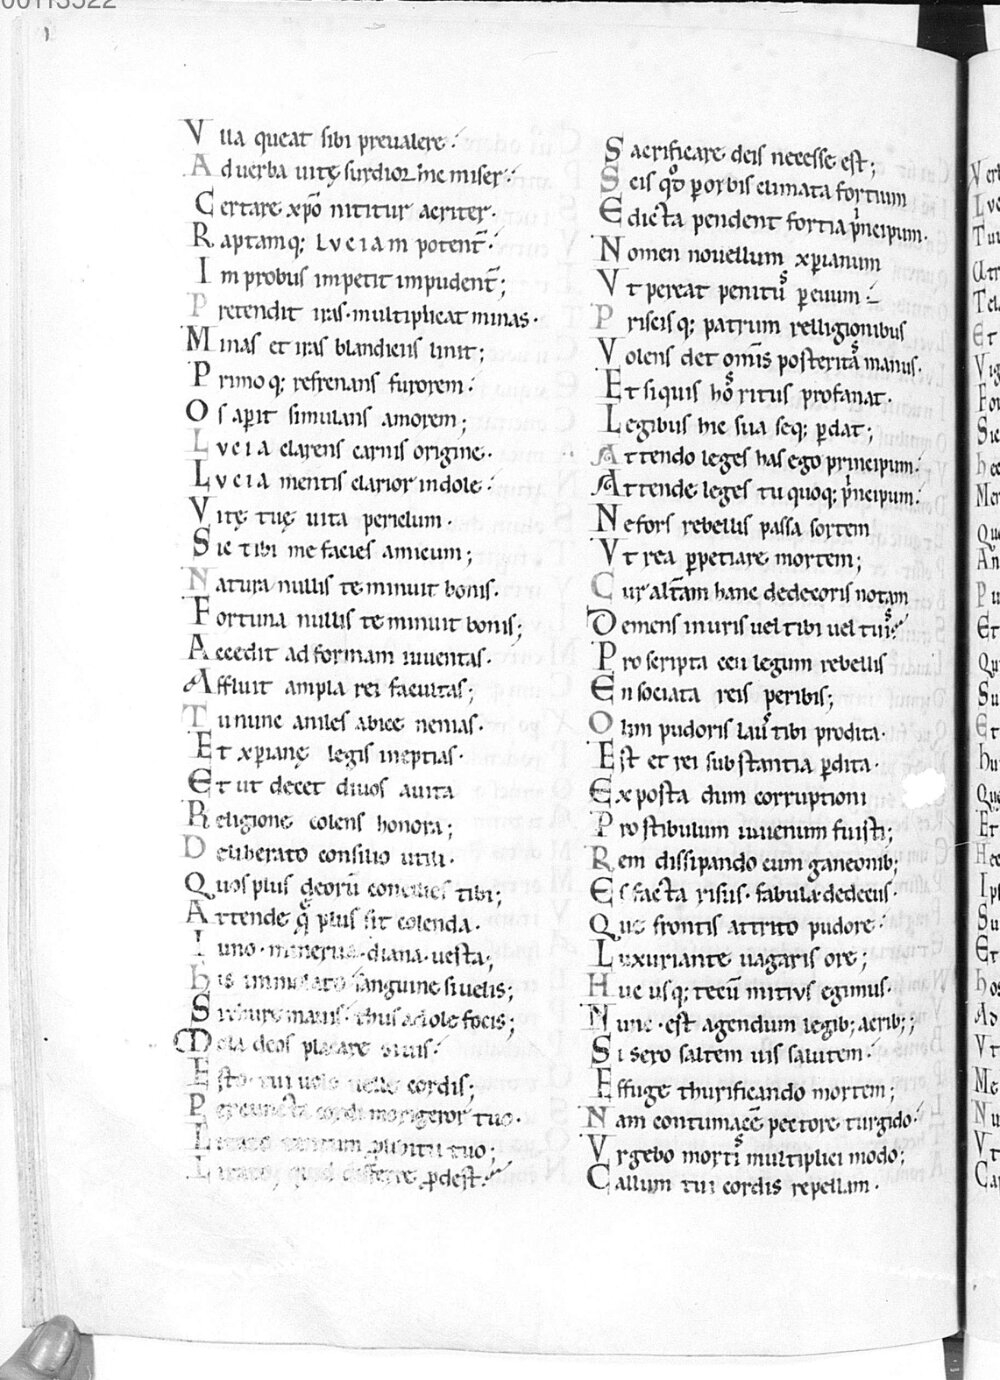 00113522
Vlla queat sibi preualere.
Ad uerba uitę surdior hic miser.
Certare xp̄o nititur acriter.
Raptamq; LVCIAM potent̄.
Improbus impetit impudent̄;
Pretendit iras. multiplicat minas.
Minas et iras blandiens linit;
Primoq; refrenans furorem.
Os aperit simulans amorem;
Lucia clarens carnis origine.
Lucia mentis clarior indole.
Vitę tuę uita periclum.
Sic tibi me facies amicum;
Natura nullis te minuit bonis.
Fortuna nullis te minuit bonis;
Accedit ad formam iuuentas.
Affluit ampla rei facultas;
Tu nunc aniles abice nenias.
Et xp̄ianę legis ineptias.
Et ut decet diuos auita
Religione colens honora;
Deliberato consilio utili.
Quos plus deorū concilies tibi;
Attende q̄ plus sit colenda.
Iuno. minerua. diana. uesta;
his immolato sanguine si uelis;
Si thure mauis. thus adole focis;
Mola deos placare
Esto tui cordis;
cordi morigeror tuo.
tuo;
quod differre ꝓdest.
Sacrificare deis necesse est;
Scis qd̄ ꝑ orbis climata fortium
Edicta pendent fortia pͥncipum.
Nomen nouellum xp̄ianum
Vt pereat penitus
Priscisq; patrum relligionibus
Volens det omnis posteritas manus.
Et siquis hos ritus profanat.
Legibus hic sua seq; ꝑdat;
Attendo leges has ego principum.
Attende leges tu quoq; pͥncipum.
Ne fors rebellis passa sortem
Vt rea ꝑpetiare mortem;
Cur alt̄am hanc dedecoris notam
Demens inuris uel tibi uel tuis.
Proscripta ceu legum rebellis
En sociata reis peribis;
Olim pudoris laus tibi prodita.
Est et rei substantia ꝑdita.
Exposta dum corruptioni
Prostibulum iuuenum fuisti;
Rem dissipando cum ganeonib;
Es facta risus. fabula dedecus.
Que frontis attrito pudore.
Luxuriante uagaris ore;
Huc usq; tecū mitius egimus.
Nunc. est agendum legib; acrib;;
Si sero saltem uis salutem.
Effuge thurificando mortem;
Nam contumacē pectore turgido.
Vrgebo mortis multiplici modo;
Callum tui cordis repellam.